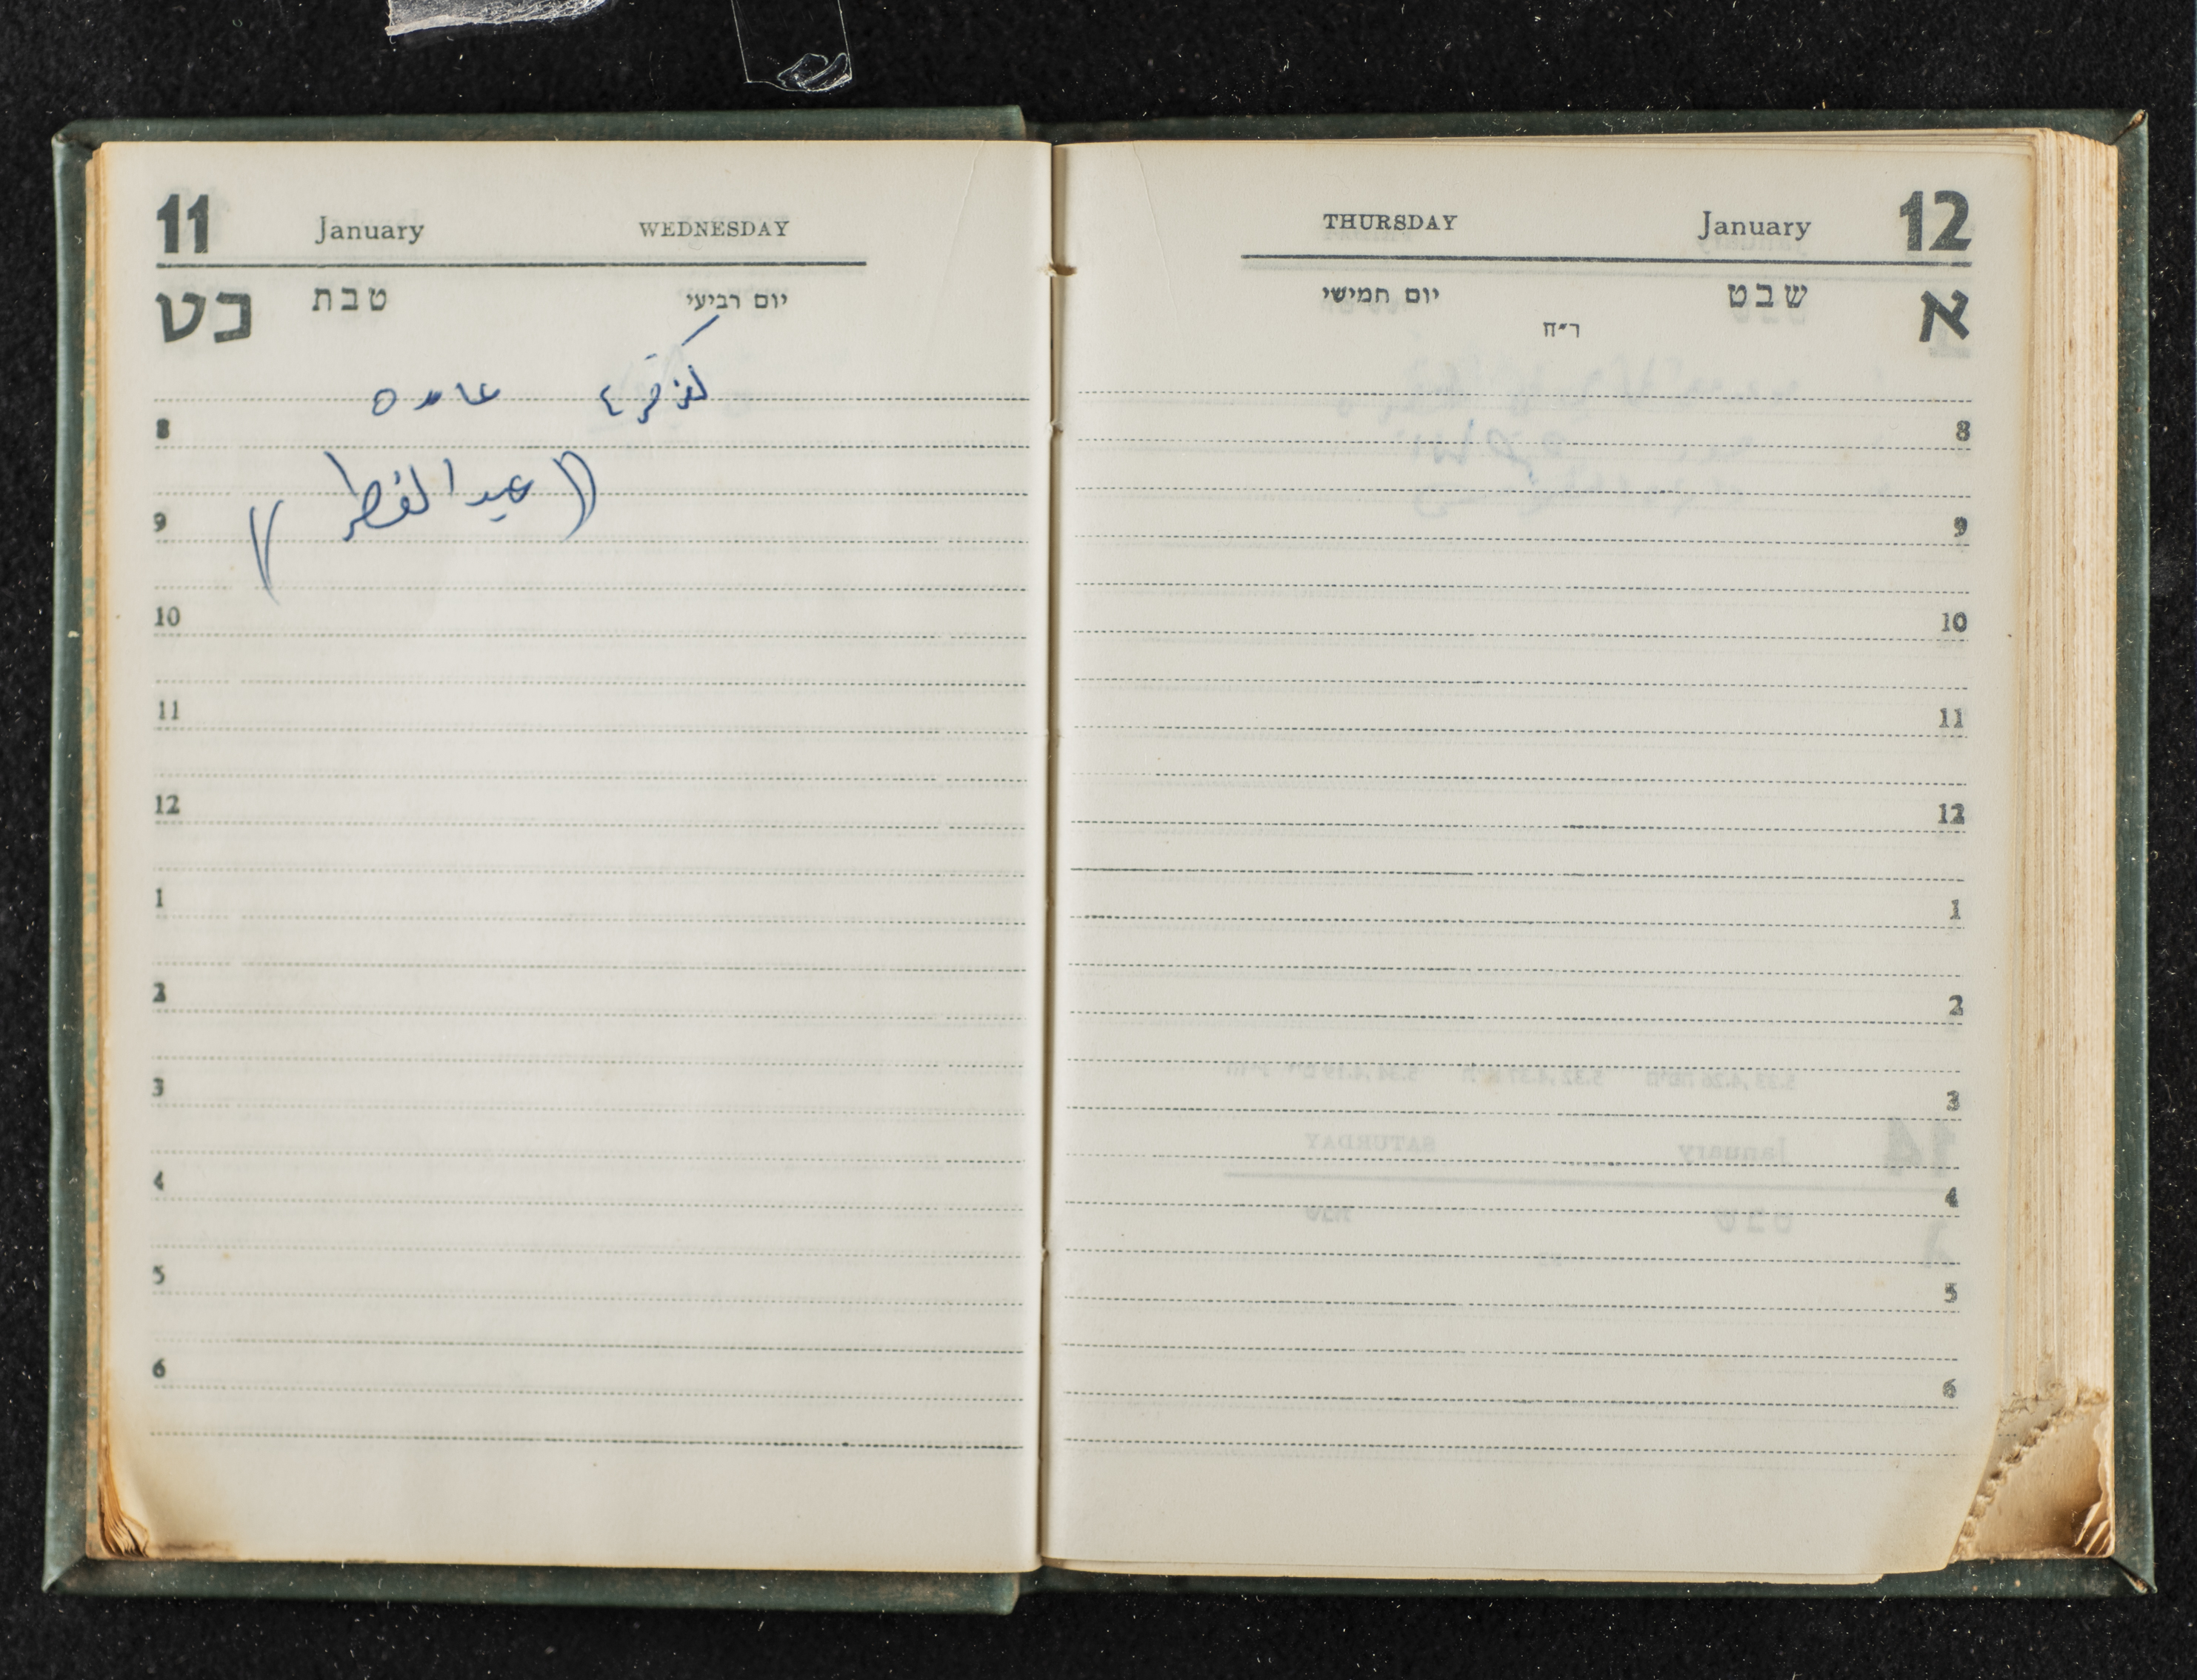 11 January WEDNESDAY
כט טבת יום רביעי
عامه
(( عيد الفطر ))
8
9
10
11
12
1
2
3
4
5
6
THURSDAY January 12
א שבט יום חמישי
ר״ח
8
9
10
11
12
1
2
3
4
5
6